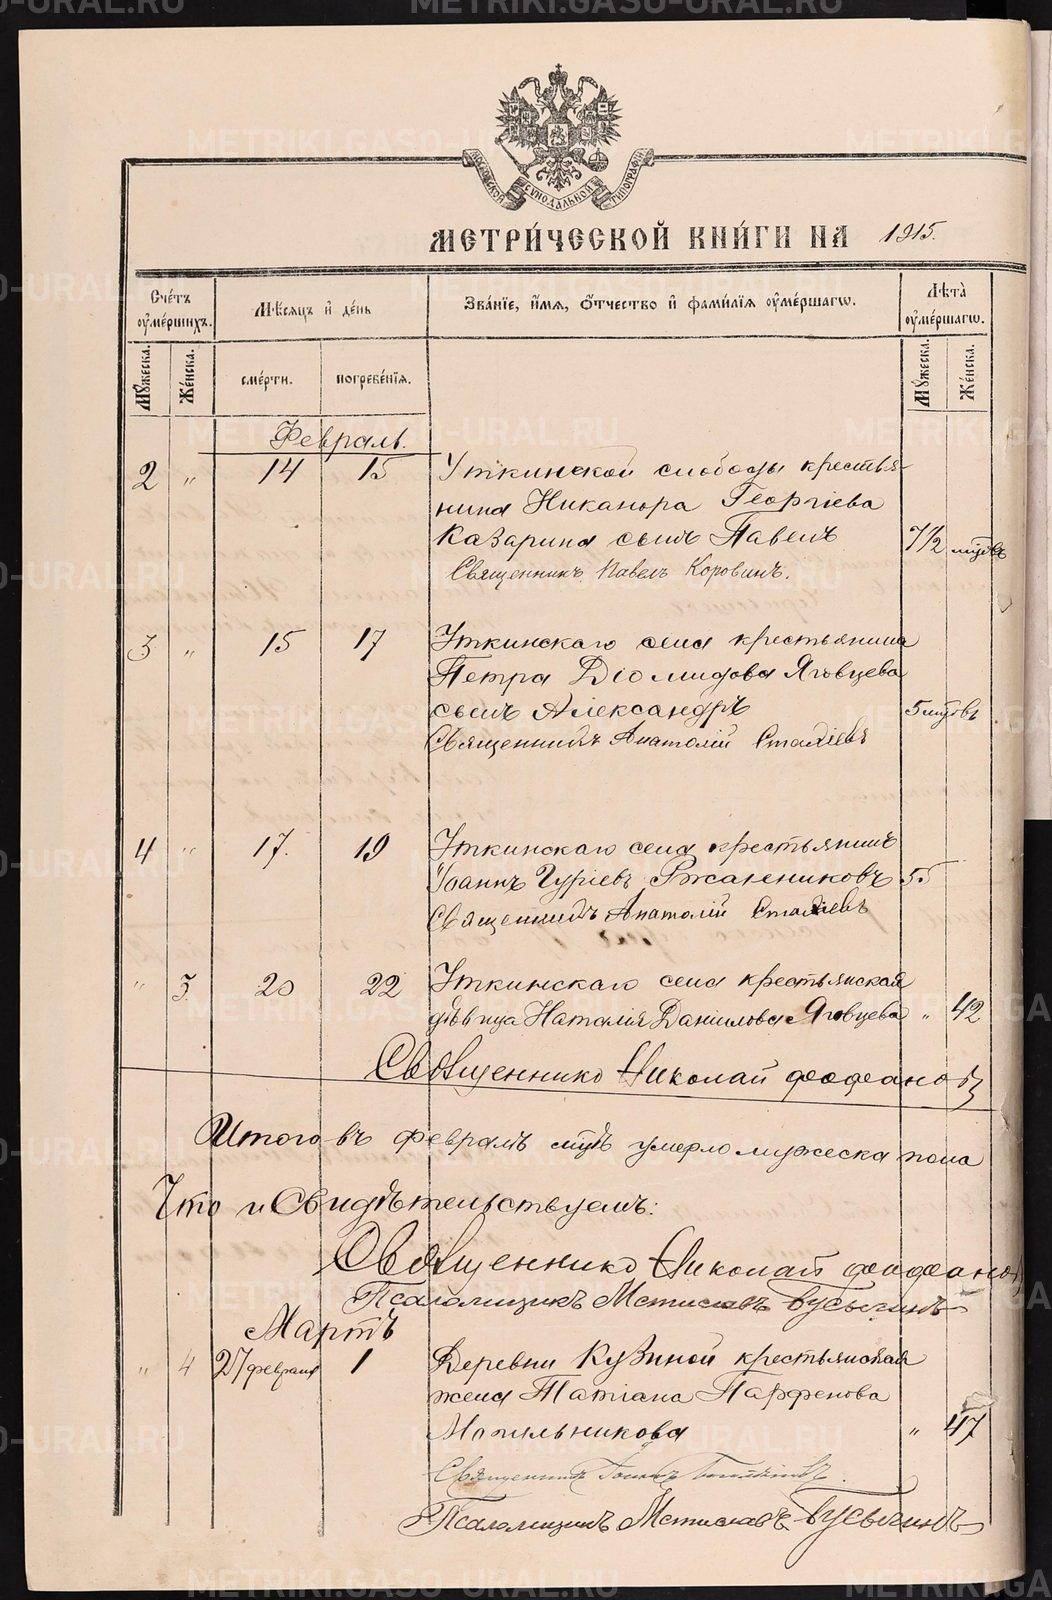 МОСКОВСКОЙ СѴНОДАЛЬНОЙ ТИПОГРАФІИ
МЕТРИ́ЧЕСКОЙ КНИ́ГИ НА 1915.
Сче́тъ ᲂу҆ме́ршихъ.
Мѣ́сяцъ и҆ де́нь
Зва́нїе, и҆́мя, ѻ҆́тчество и҆ фами́лїя ᲂу҆ме́ршагѡ.
Лѣта̀ ᲂу҆ме́ршагѡ.
Мꙋ́жеска.
Же́нска.
сме́рти.
погребе́нїя.
Мꙋ́жеска.
Же́нска.
Февраль.
2 " 14 15 Уткинской слободы крестья-
нина Никанора Георгіева
Казарина сынъ Павелъ 7 1/2 мѣсяцовъ
Священникъ Павелъ Коровинъ.
3 " 15 17 Уткинскаго села крестьянина
Петра Діомидова Яговцева
сынъ Александръ 5 мѣсяцовъ
Священникъ Анатолій
4 " 17. 19 Уткинскаго села крестьянинъ
Іоаннъ Гуріевъ Ржанниковъ 55
Священникъ Анатолій
" 3 20 22 Уткинскаго села крестьянская
дѣвица Наталія Даніилова Яговцева " 42
Священникъ Николай Феофановъ
Итого въ февралѣ мцѣ умерло мужеска пола
Что и Свидѣтельствуемъ:
Священникъ Николай Феофановъ
Псаломщикъ Мстиславъ Бусыгинъ
Мартъ
" 4 27 февраля 1 Деревни Кузиной крестьянская
жена Татіана Парфенова
Мотыльникова " 47
Священникъ
Псаломщикъ Мстиславъ Бусыгинъ
METRIKI.GASO-URAL.RU